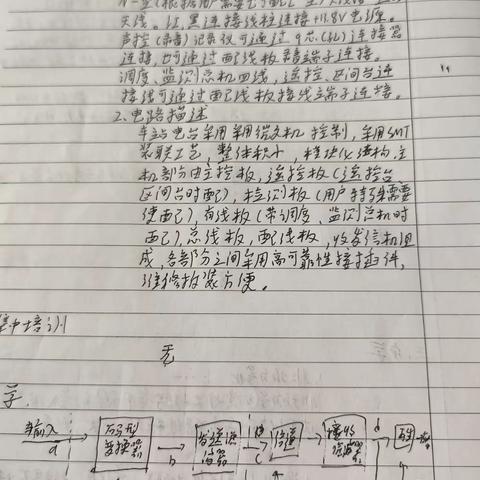 天线。红、黑连接线柱连接+13.8V电源。
声控(录音)记录仪可通过9芯(孔)连接器
连接,也可通过配线板录音端子连接。
调度、监测总机四线,遥控、区间台连
接线可通过配线板接线端子连接。
2.电路描述
车站电台采用单片微机控制,采用SMT
装联工艺,整体积小,模块化结构,主
机部分由主控板,遥控板(遥控台
区间台时配),检测板(用户特殊需要
使配),有线板(带调度、监测总机时
配),总线板,配线板,收发信机组
成,各部分之间采用高可靠性接插件,
维修拆装方便。
集中培训
无
学.
输入 码形变换器 发送滤波器 信道 接收滤波器
a b c d